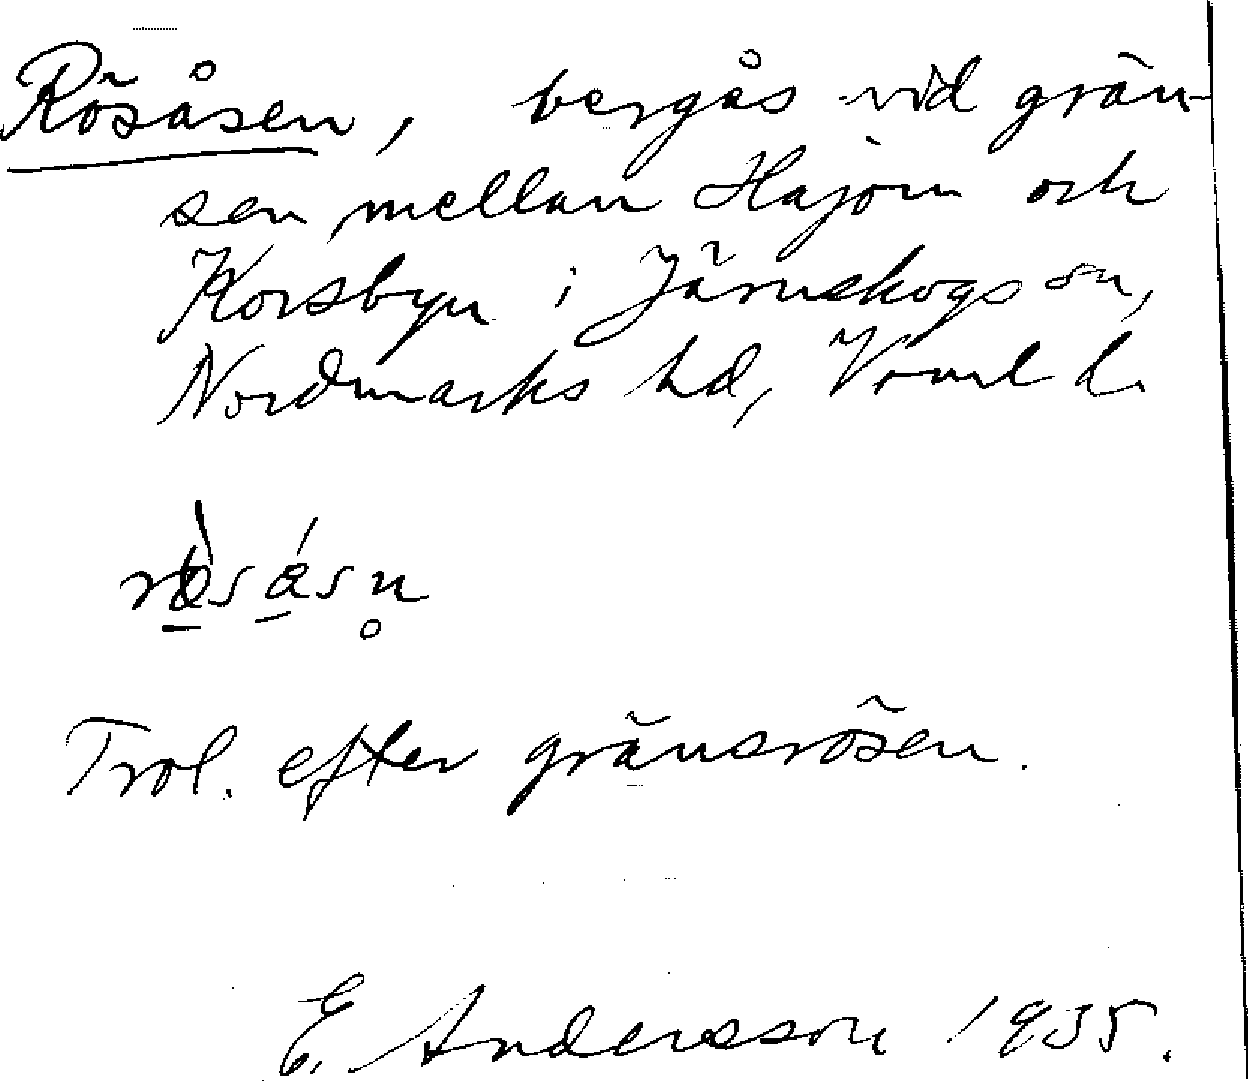 Rösåsen, bergås vid grän-
sen mellan Hajom och
Korsbyn i Järnskogs sn,
Nordmarks hd, Vrml d.
Trol. efter gränsrösen.
E. Andersson 1935.